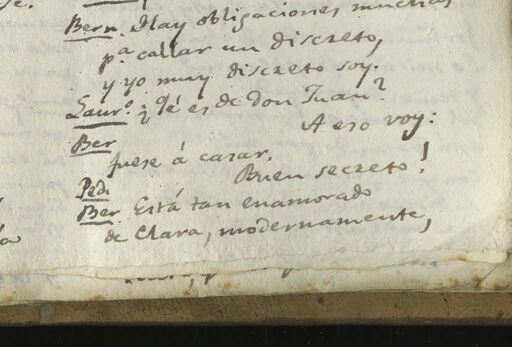 Bern. Hay obligaciones muchas
p.ª callar un discreto,
y yo muy discreto soy.
Laur.º ¿Qé es de Don Juan?
Ber A eso voy:
fuese á cazar.
Ped. Buen secreto!
Ber Está tan enamorado
de Clara, modernamente,